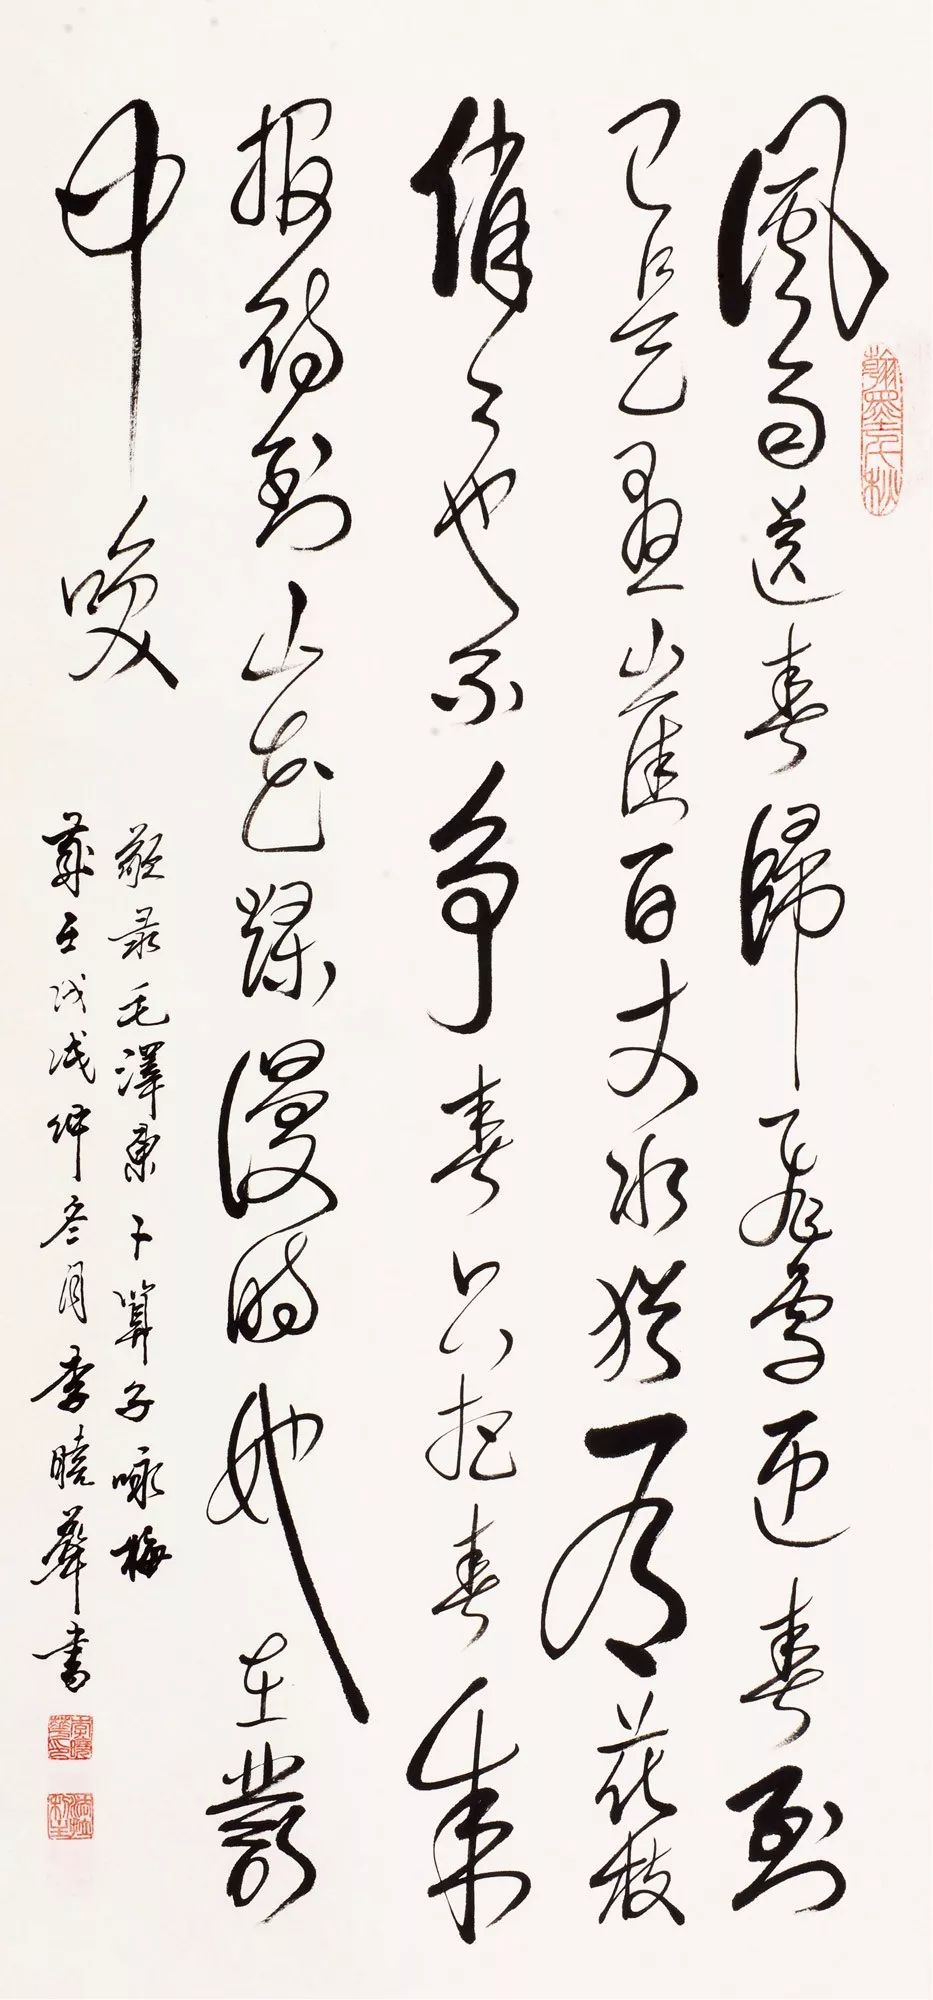 風雨送春歸飛雪迎春到
已是懸崖百丈冰犹有花枝
俏々也不争春只把春來
报待到山花爛漫時她在叢
中笑
敬录毛澤東卜算子咏梅
歲在戊戌仲冬月李曉華书
翰墨千秋